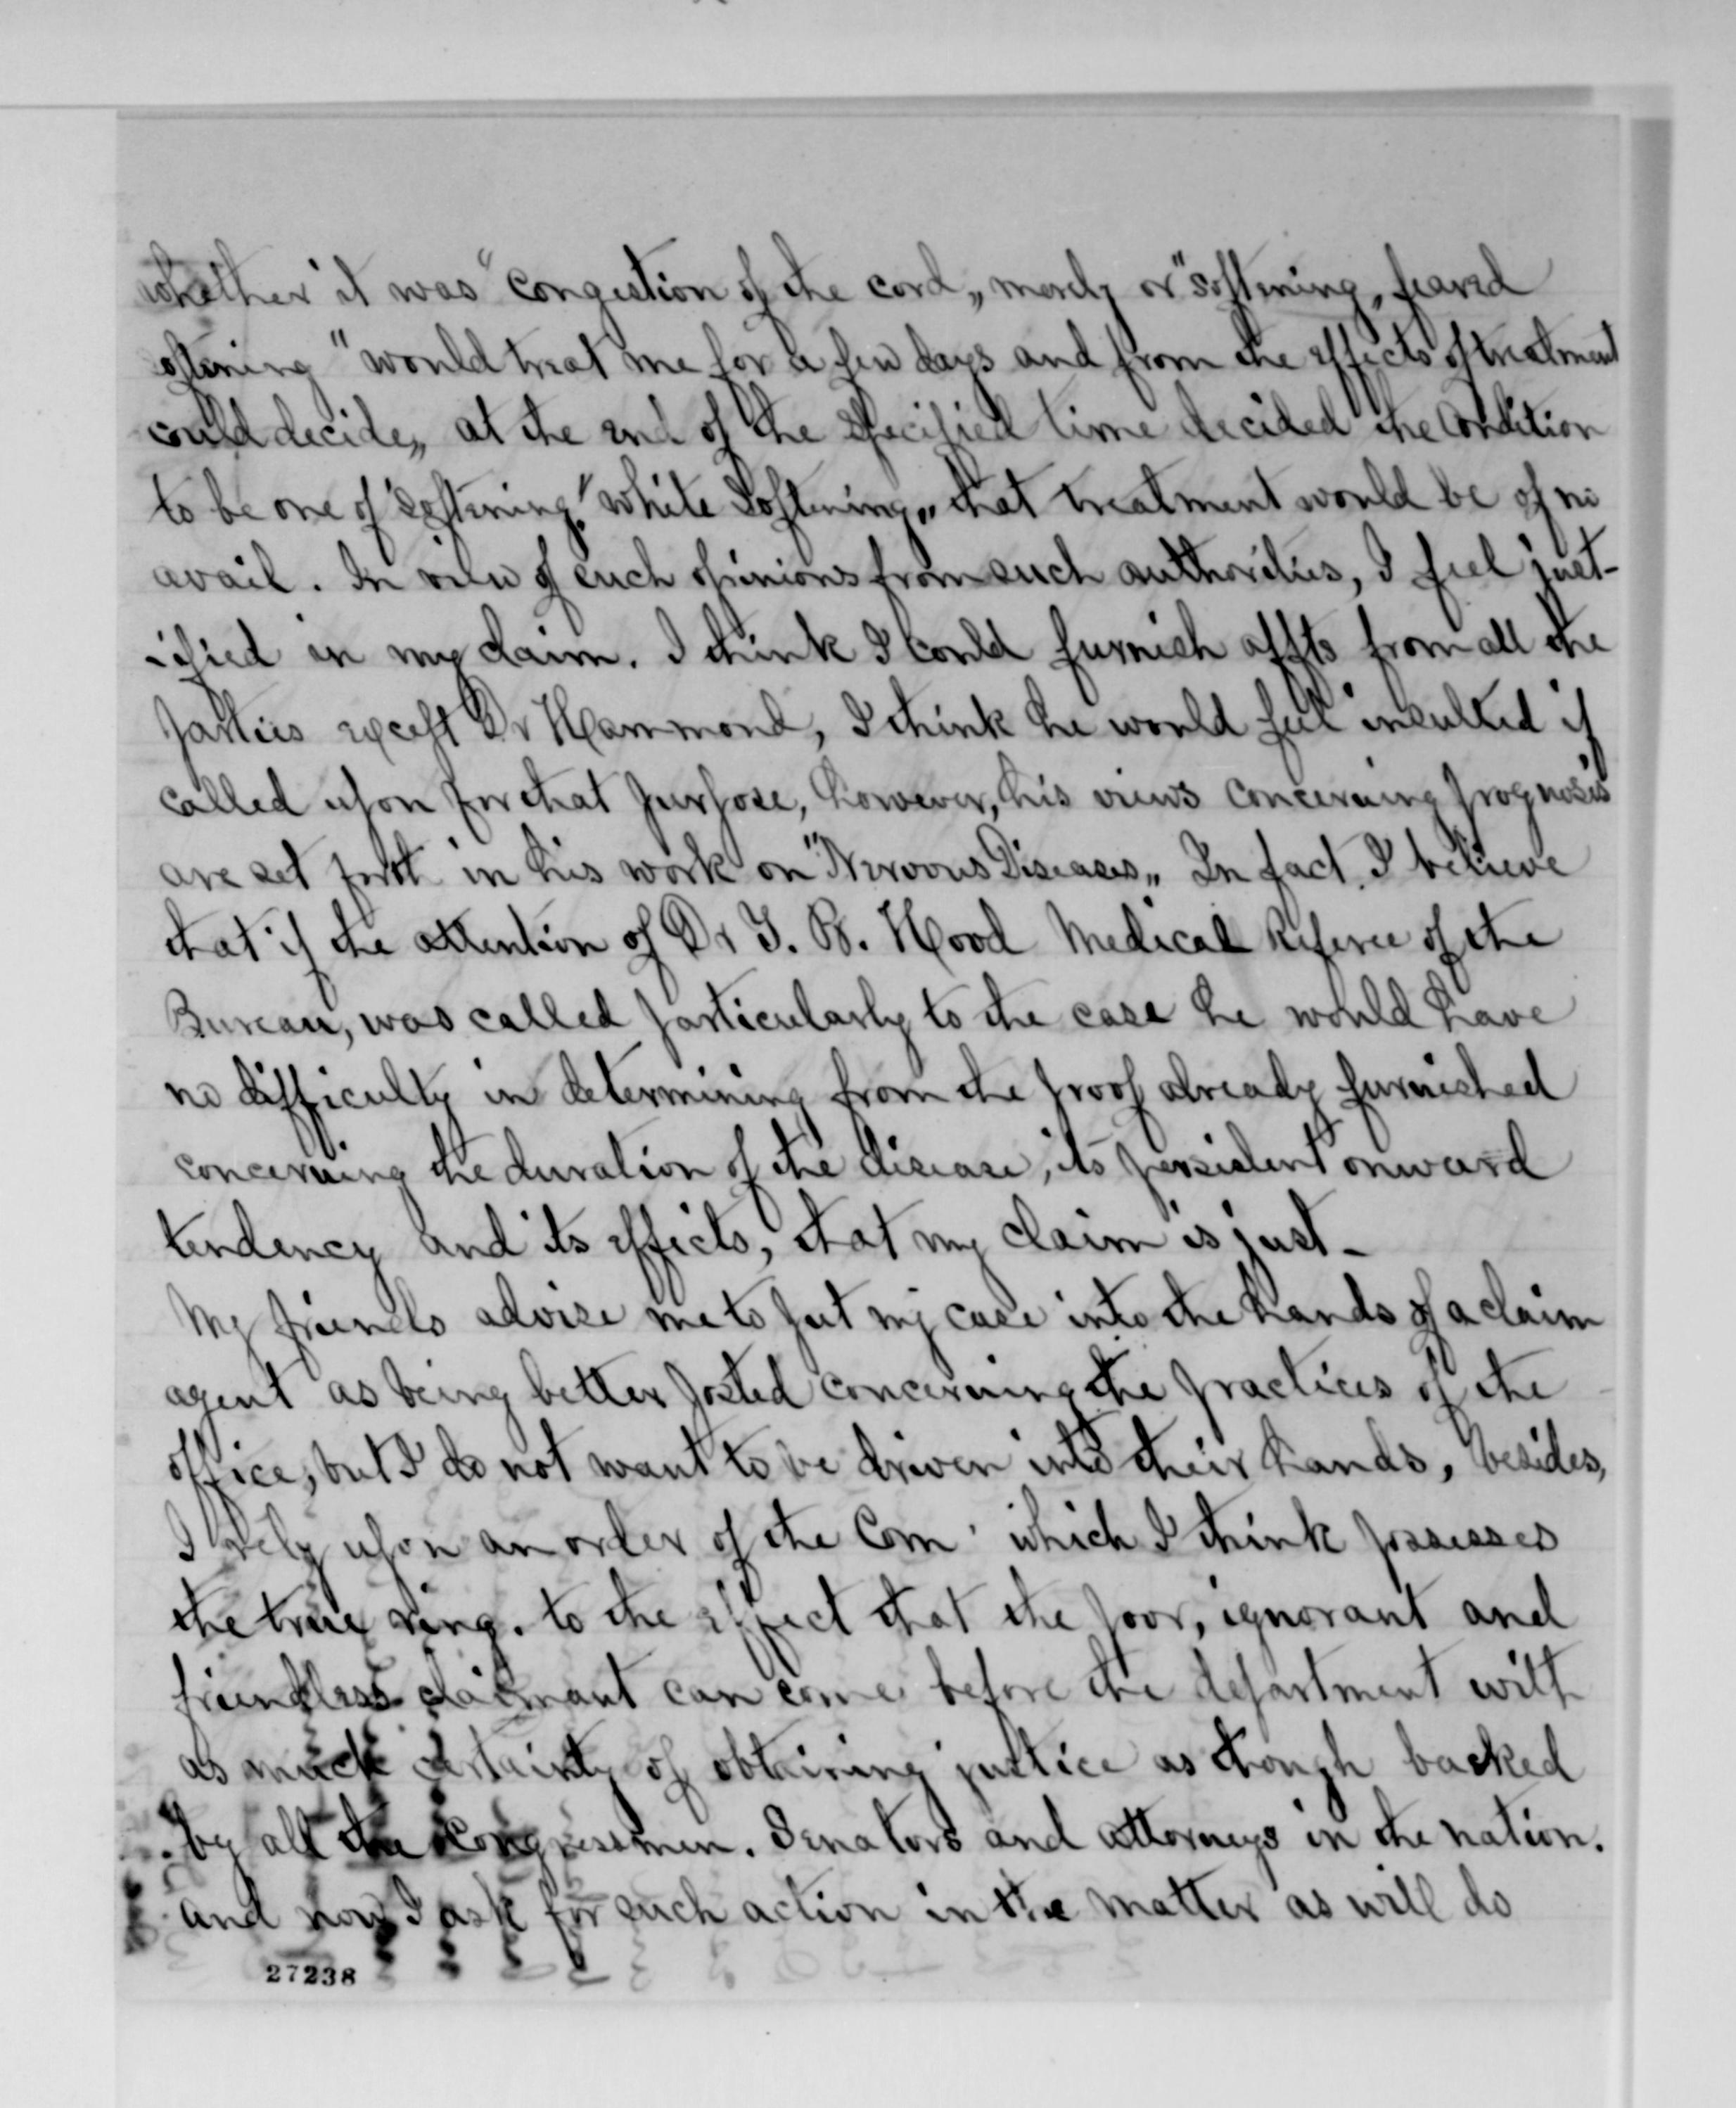 whether it was "congestion of the cord„ merely or "softening„ feared
softening "would treat me for a few days and from the effects of treatment
could decide„ at the end of the specified time decided the condition
to be one of "softening." "White Softening„ that treatment would be of no
avail. In view of such opinions from such authorities, I feel just-
ified in my claim. I think I could furnish affts from all the
parties except Dr Hammond, I think he would feel insulted if
called upon for that purpose, however, his views concerning prognosis
are set forth in his work on "Nervous Diseases„ In fact I believe
that if the attention of Dr T. B. Hood Medical Referee of the
Bureau, was called particularly to the case he would have
no difficulty in determining from the proof already furnished
concerning the duration of the disease, its persistent onward
tendency and its effects, that my claim is just-
My friends advise me to put my case into the hands of a claim
agent as being better posted concerning the practices of the
office, but I do not want to be driven into their hands, besides,
I rely upon an order of the Com. which I think possesses
the true ring. to the effect that the poor, ignorant and
friendless claimant can come before the department with
as much certainty of obtaining justice as though backed
by all the Congressmen. Senators and attorneys in the nation.
and now I ask for such action in the matter as will do
27238